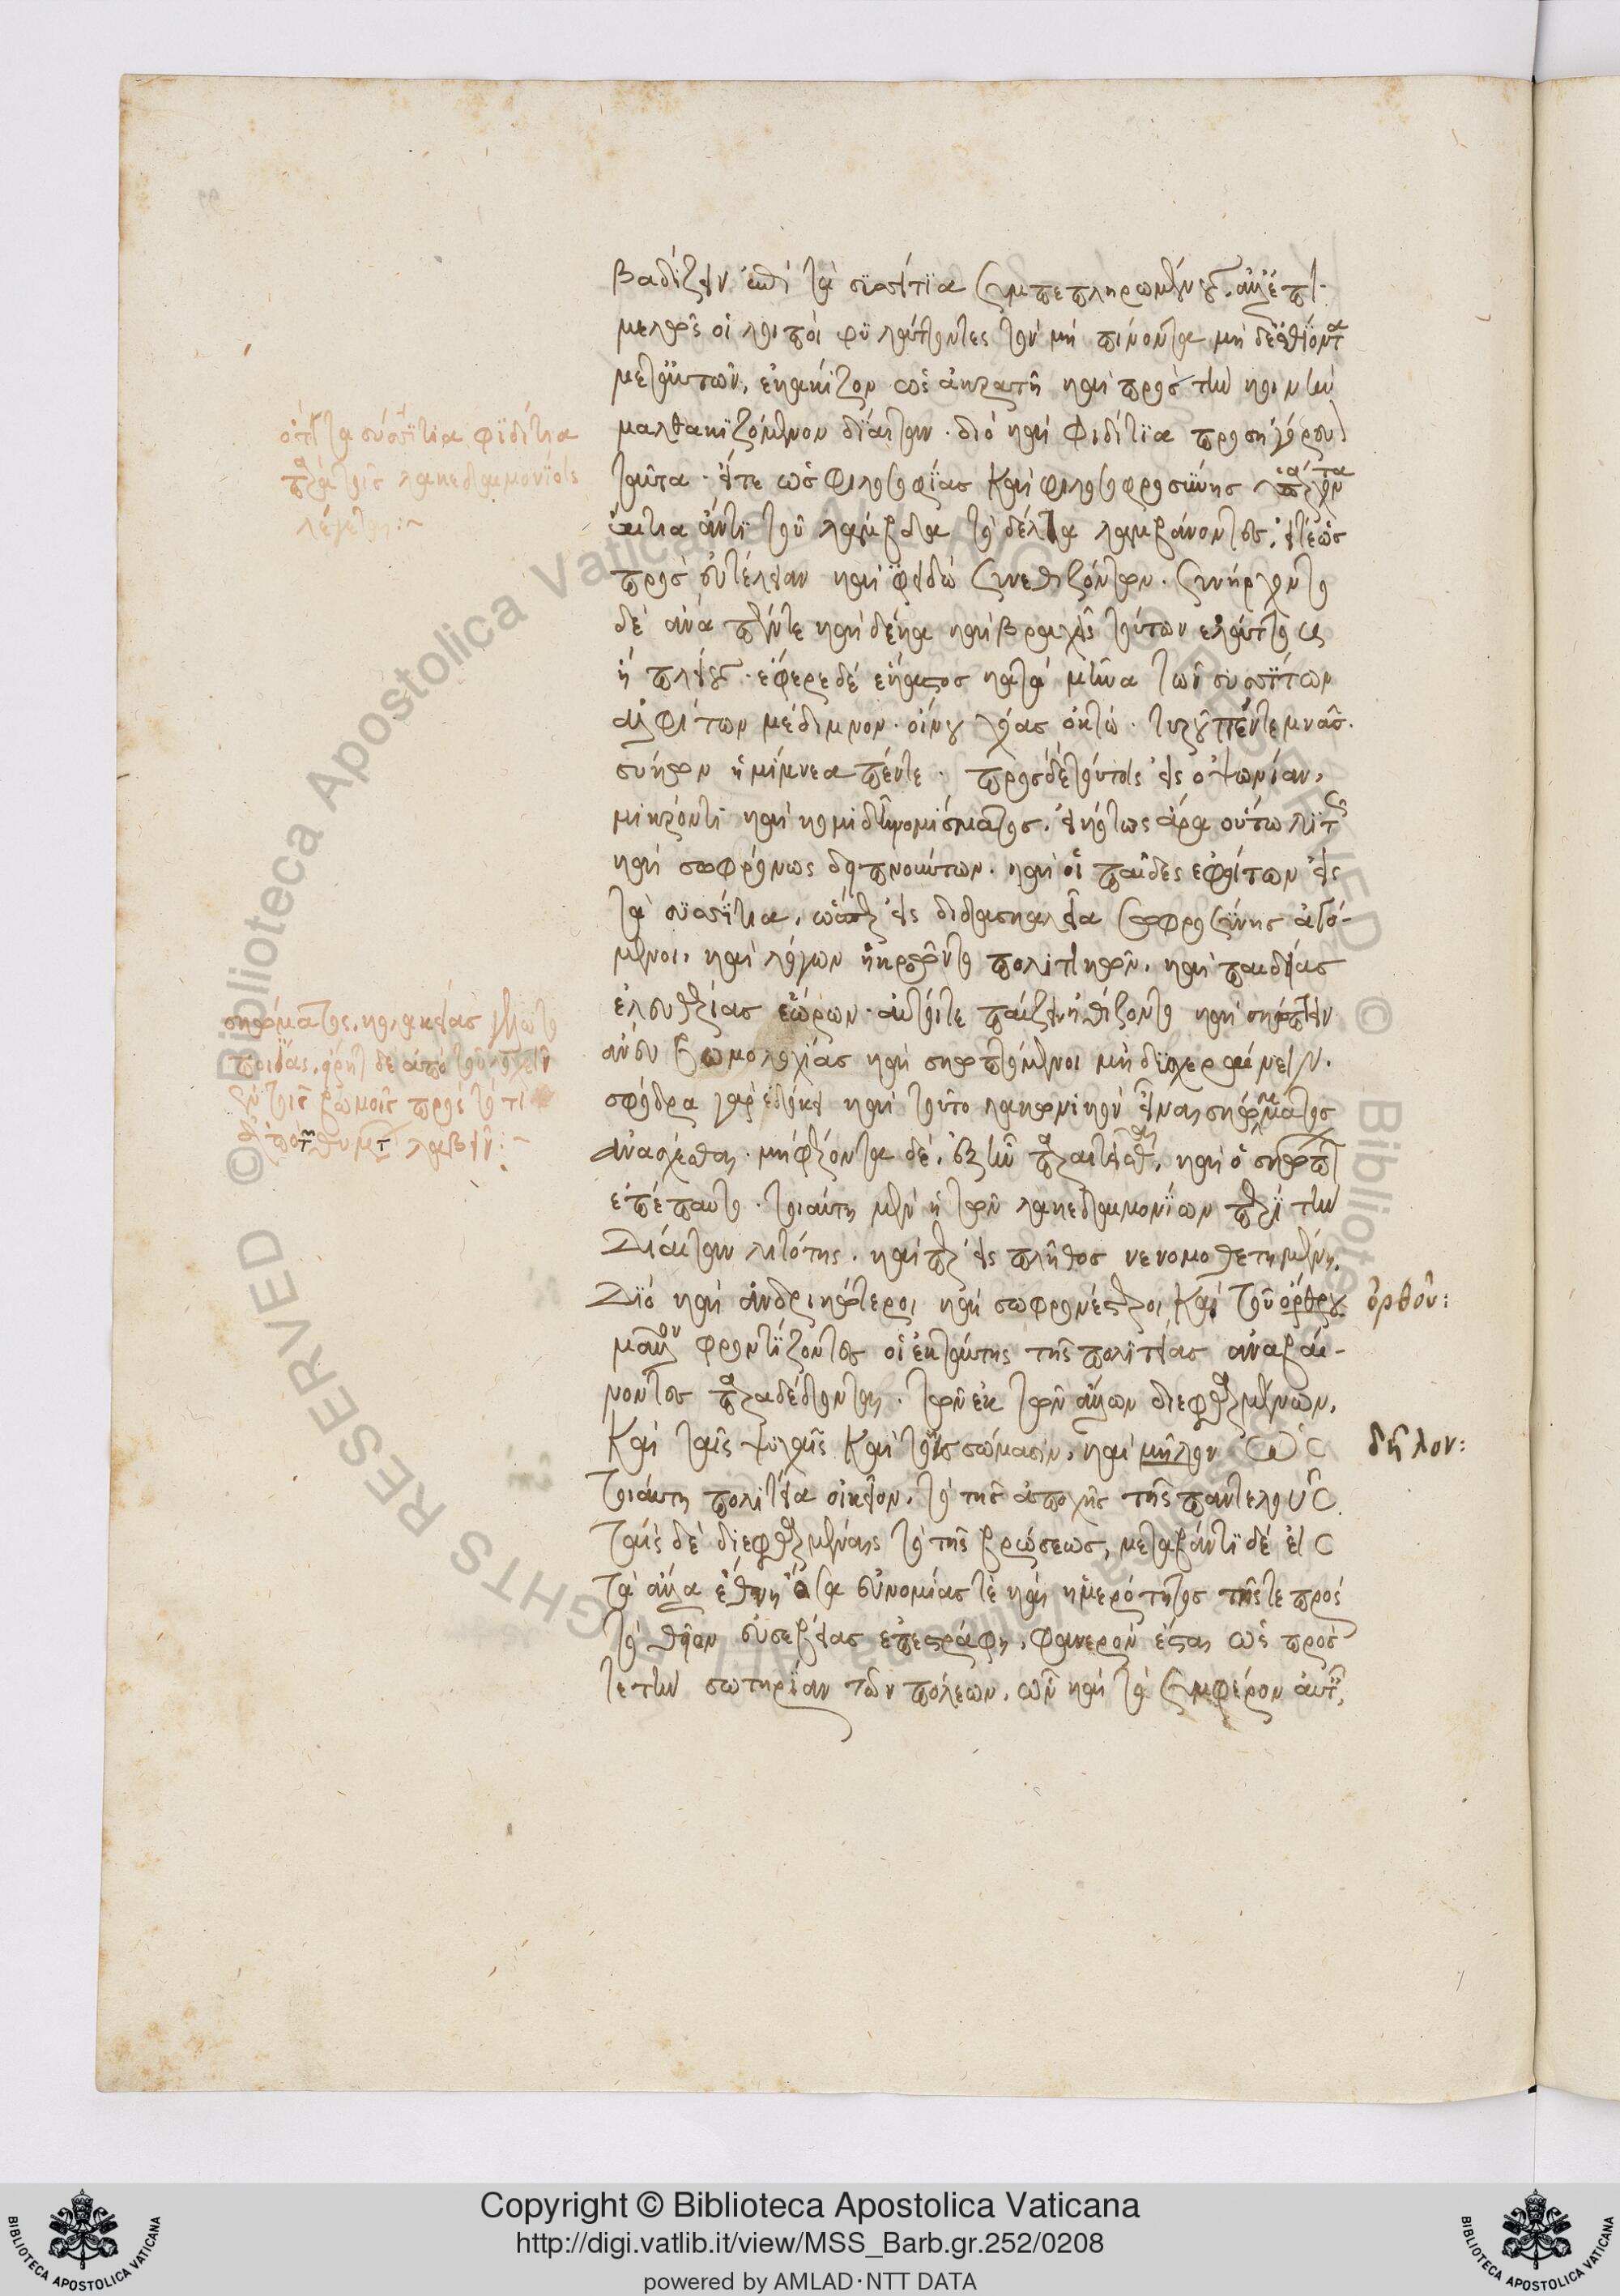 βαδίζειν ἐπὶ τὰ συσσίτια συμπεπληρωμένους. ἀλλ' ἐπι-
μελῶς οἱ λοιποὶ φυλάττοντες τὸν μὴ πίνοντα μὴ δὲ ἐσθίοντα
μετ' αὐτῶν, ἐκάκιζον ὡς ἀκρατῆ καὶ πρὸς τὴν κοινὴν
μαλθακιζόμενον δίαιταν. διὸ καὶ φιδίτια προσηγόρευον
ταῦτα. εἴτε ὡς φιλίας καὶ φιλοφροσύνης
αἴτια ἀντὶ τοῦ λάμβδα τὸ δέλτα λαμβάνοντες, εἴτε ὡς
πρὸς εὐτέλειαν καὶ φειδὼ συνεθιζόντων. συνήρχοντο
δὲ ἀνὰ πέντε καὶ δέκα καὶ βραχεῖ τούτων ἐλάττους
ἢ πλείους. ἔφερε δὲ ἕκαστος κατὰ μῆνα τῶν συσσίτων
ἀλφίτων μέδιμνον. οἴνου χόας ὀκτώ. τυροῦ πέντε μνᾶς.
σύκων ἡμίμνεα πέντε. πρὸς δὲ τούτοις εἰς ὀψωνίαν,
μικρόν τι κομιδῇ νομίσματος. εἰκότως ἄρα οὕτω λιτῶς
καὶ σωφρόνως δειπνούντων. καὶ οἱ παῖδες ἐφοίτων εἰς
τὰ συσσίτια, ὥσπερ εἰς διδασκαλεῖα σωφροσύνης ἀγό-
μενοι, καὶ λόγων ἠκροῶντο πολιτικῶν, καὶ παιδιὰς
ἐλευθερίας ἑώρων. αὐτοί τε παίζειν εἰθίζοντο καὶ σκώπτειν
ἄνευ βωμολοχίας καὶ σκωπτόμενοι μὴ δυσχεραίνειν.
σφόδρα γὰρ ἐδόκει καὶ τοῦτο λακωνικὸν εἶναι σκώμματος
ἀνασχέσθαι. μὴ φέροντα δέ, ἐξῆν παραιτεῖσθαι, καὶ ὁ σκώπτων
ἐπέπαυτο. τοιαύτη μὲν ἡ τῶν λακεδαιμονίων περὶ τὴν
Δίαιταν λιτότης. καίπερ εἰς πλῆθος νενομοθετημένη.
Διὸ καὶ ἀνδρικώτεροι καὶ σωφρονέστεροι καὶ τοῦ ὄρθρου ὀρθοῦ:
μᾶλλον φροντίζοντες οἱ ἐκ ταύτης τῆς πολιτείας ἀναβαί-
νοντες παραδέδονται. τῶν ἐκ τῶν ἄλλων διεφθαρμένων,
καὶ ταῖς ψυχαῖς καὶ τοῖς σώμασιν, καὶ μῆλον ὡς δῆλον:
Τοιαύτῃ πολιτείᾳ οἰκεῖον, τὸ τῆς ἀποχῆς τῆς παντελοῦς.
Ταῖς δὲ διεφθαρμέναις τὸ τῆς βρώσεως, μεταβάντι δὲ εἰς
τὰ ἄλλα ἔθνη ὅσα εὐνομίας τὲ καὶ ἡμερότητος τῆς τε πρὸς
τὸ θεῖον εὐσεβείας ἐπεστράφη, φανερὸν ἔσται ὡς πρός
τε τὴν σωτηρίαν τῶν πόλεων, ὧν καὶ τὸ συμφέρον αὐτοῖς,
ὅτι τὰ συσσίτια φιδίτια
παρὰ τοῖς λακεδαιμονίοις
λέγεται:~